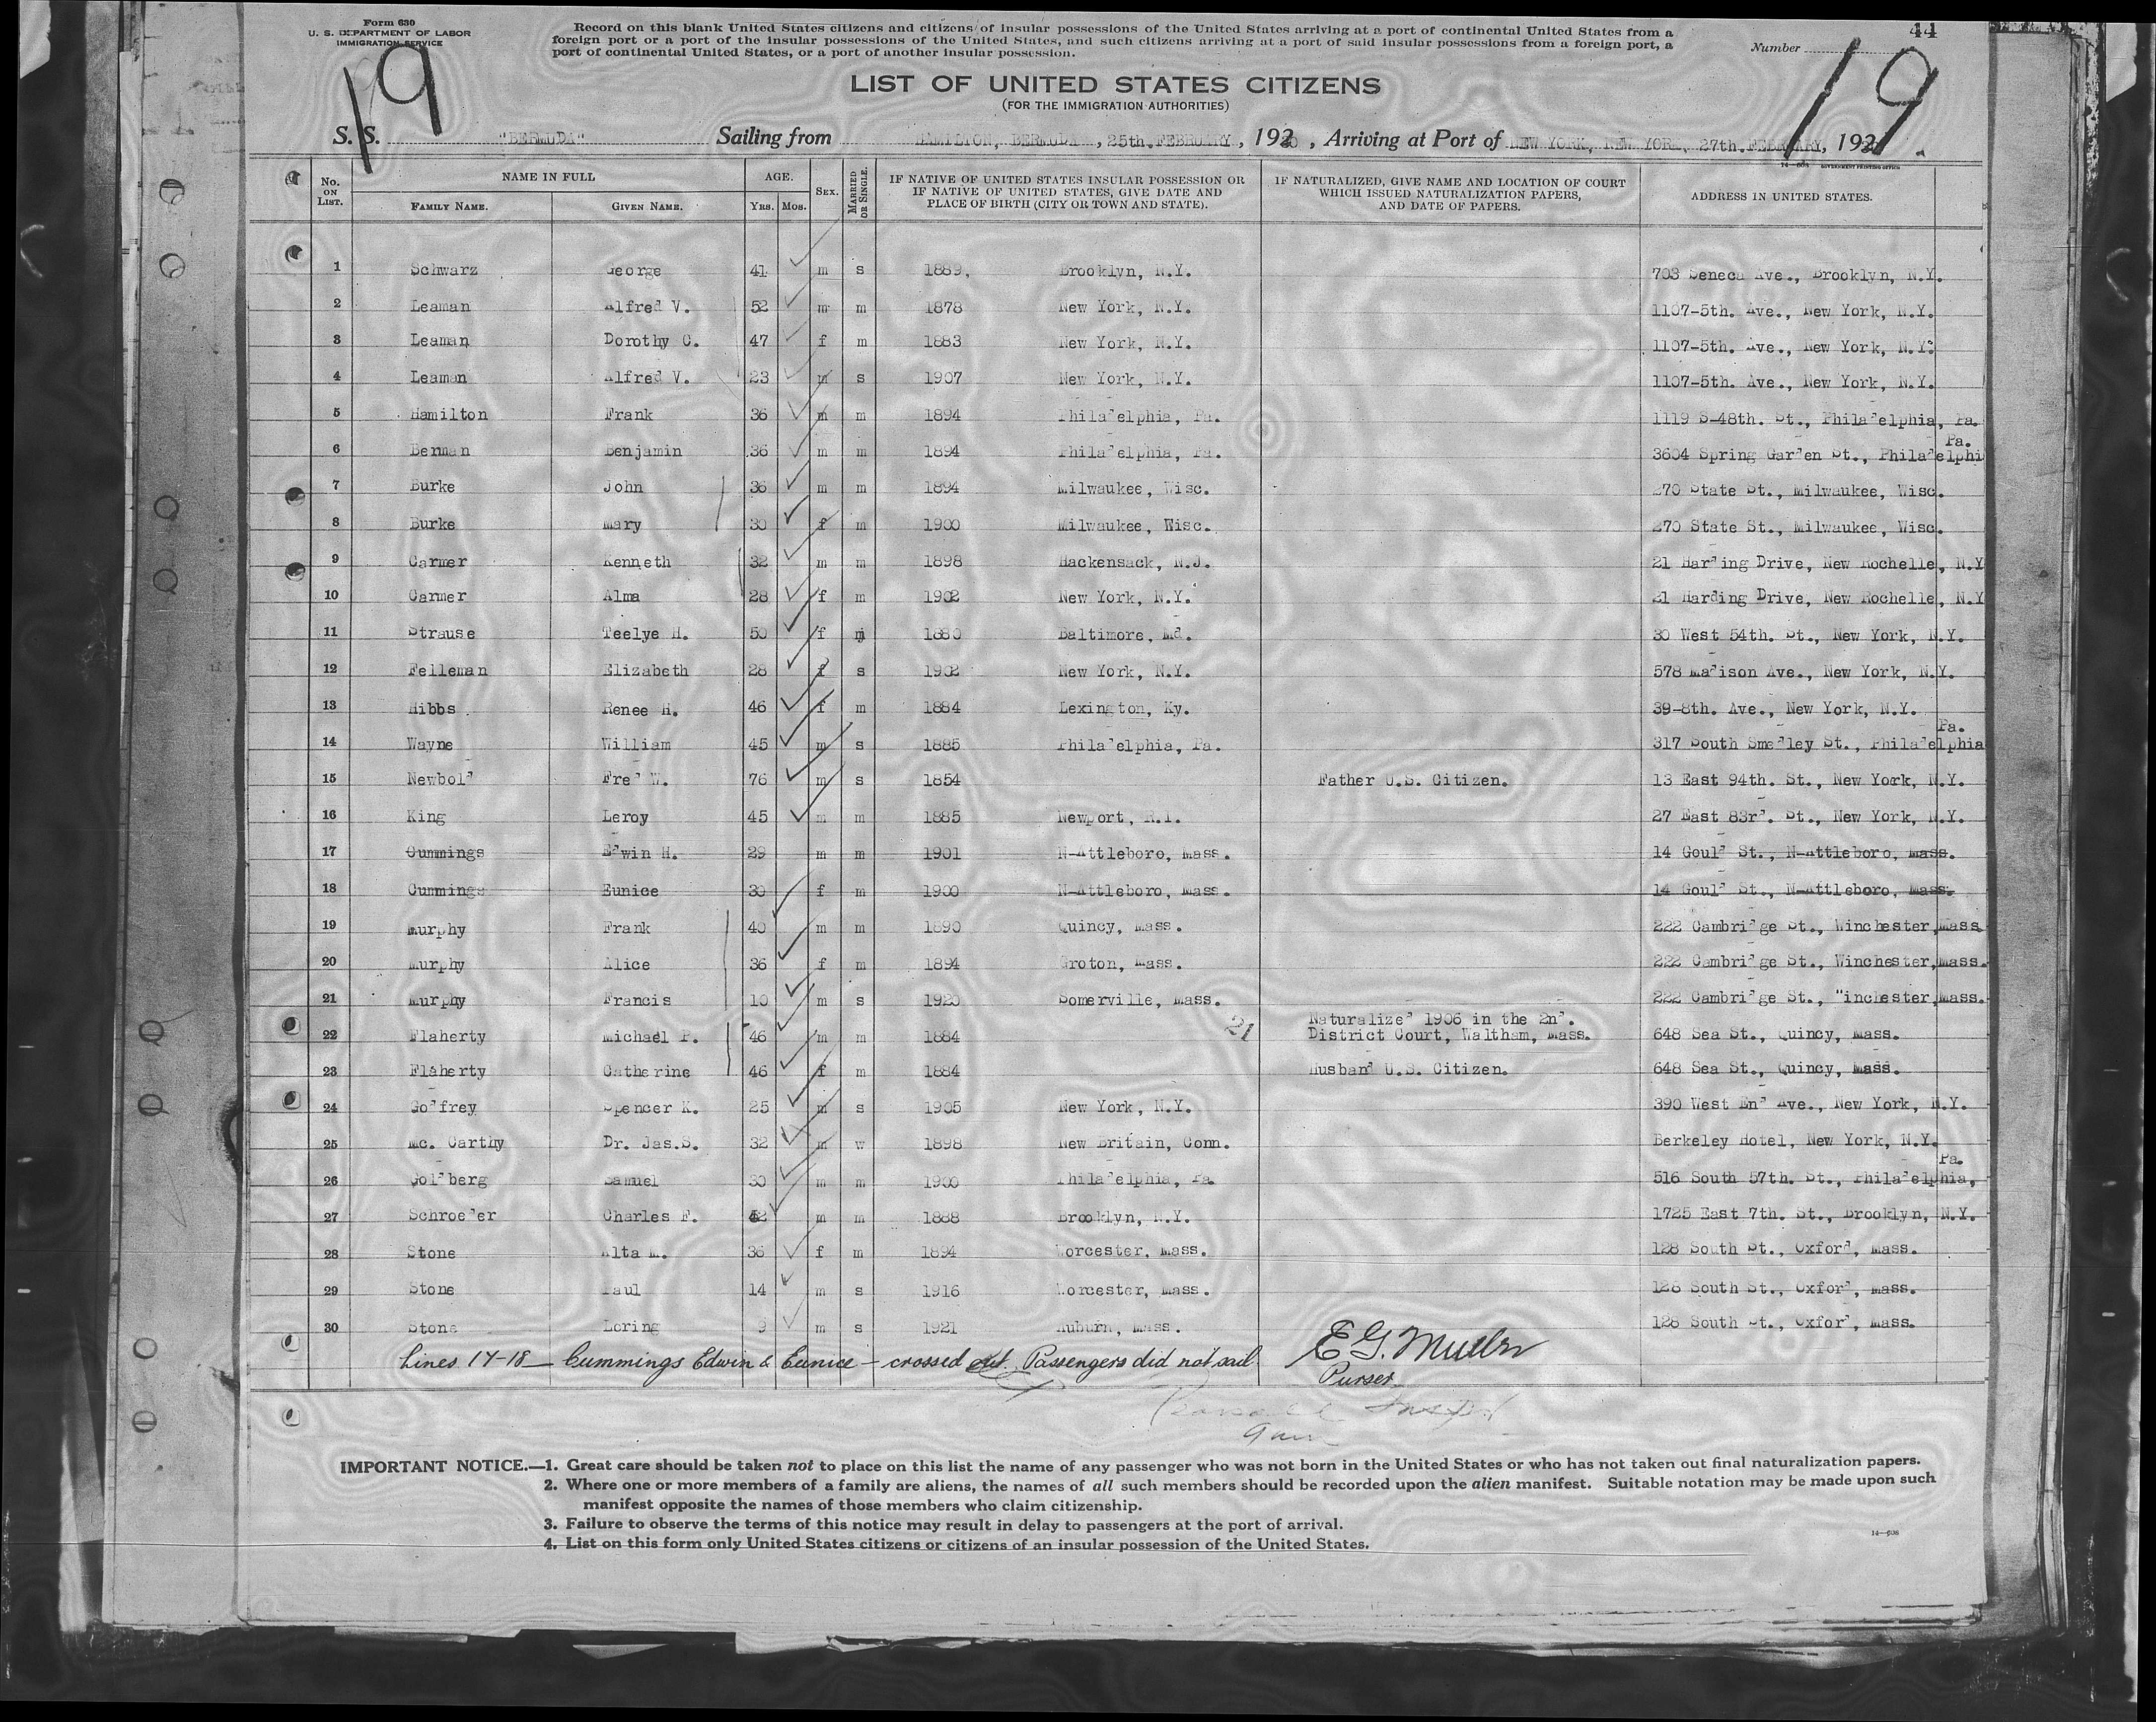 Form 630
U. S. DEPARTMENT OF LABOR
IMMIGRATION SERVICE
Record on this blank United States citizens and citizens of insular possessions of the United States arriving at a port of continental United States from a
foreign port or a port of the insular possessions of the United States, and such citizens arriving at a port of said insular possessions from a foreign port, a
port of continental United States, or a port of another insular possession.
44
Number
19
19
LIST OF UNITED STATES CITIZENS
(FOR THE IMMIGRATION AUTHORITIES)
S. S. "BERMUDA" Sailing from HAMILTON, BERMUDA, 25th. FEBRUARY, 1930, Arriving at Port of NEW YORK, NEW YORK, 27th. FEBRUARY, 1930.
14—608 GOVERNMENT PRINTING OFFICE
No. ON LIST. NAME IN FULL FAMILY NAME. GIVEN NAME. AGE. YRS. MOS. SEX. MARRIED OR SINGLE. IF NATIVE OF UNITED STATES INSULAR POSSESSION OR IF NATIVE OF UNITED STATES, GIVE DATE AND PLACE OF BIRTH (CITY OR TOWN AND STATE). IF NATURALIZED, GIVE NAME AND LOCATION OF COURT WHICH ISSUED NATURALIZATION PAPERS, AND DATE OF PAPERS. ADDRESS IN UNITED STATES.
1 Schwarz George 41 m s 1889, Brooklyn, N.Y. 703 Seneca Ave., Brooklyn, N.Y.
2 Leaman Alfred V. 52 m m 1878 New York, N.Y. 1107-5th. Ave., New York, N.Y.
3 Leaman Dorothy C. 47 f m 1883 New York, N.Y. 1107-5th. Ave., New York, N.Y.
4 Leaman Alfred V. 23 m s 1907 New York, N.Y. 1107-5th. Ave., New York, N.Y.
5 Hamilton Frank 36 m m 1894 Philadelphia, Pa. 1119 S-48th. St., Philadelphia, Pa.
6 Berman Benjamin 36 m m 1894 Philadelphia, Pa. 3604 Spring Garden St., Philadelphi Pa.
7 Burke John 36 m m 1894 Milwaukee, Wisc. 270 State St., Milwaukee, Wisc.
8 Burke Mary 30 f m 1900 Milwaukee, Wisc. 270 State St., Milwaukee, Wisc.
9 Carmer Kenneth 32 m m 1898 Hackensack, N.J. 21 Harding Drive, New Rochelle, N.Y
10 Carmer Alma 28 f m 1902 New York, N.Y. 21 Harding Drive, New Rochelle, N.Y
11 Strause Teelye H. 50 f m 1880 Baltimore, Md. 30 West 54th. St., New York, N.Y.
12 Felleman Elizabeth 28 f s 1902 New York, N.Y. 578 Madison Ave., New York, N.Y.
13 Hibbs Renee H. 46 f m 1884 Lexington, Ky. 39-8th. Ave., New York, N.Y.
14 Wayne William 45 m s 1885 Philadelphia, Pa. 317 South Smedley St., Philadelphia Pa.
15 Newbold Fred W. 76 m s 1854 Father U.S. Citizen. 13 East 94th. St., New York, N.Y.
16 King Leroy 45 m m 1885 Newport, R.I. 27 East 83rd. St., New York, N.Y.
17 Cummings Edwin H. 29 m m 1901 N-Attleboro, Mass. 14 Gould St., N-Attleboro, Mass.
18 Cummings Eunice 30 f m 1900 N-Attleboro, Mass. 14 Gould St., N-Attleboro, Mass.
19 Murphy Frank 40 m m 1890 Quincy, Mass. 222 Cambridge St., Winchester, Mass
20 Murphy Alice 36 f m 1894 Groton, Mass. 222 Cambridge St., Winchester, Mass.
21 Murphy Francis 10 m s 1920 Somerville, Mass. 222 Cambridge St., "inchester, Mass.
22 Flaherty Michael P. 46 m m 1884 21 Naturalized 1906 in the 2nd. District Court, Waltham, Mass. 648 Sea St., Quincy, Mass.
23 Flaherty Catherine 46 f m 1884 Husband U.S. Citizen. 648 Sea St., Quincy, Mass.
24 Godfrey Spencer K. 25 m s 1905 New York, N.Y. 390 West End Ave., New York, N.Y.
25 Mc. Carthy Dr. Jas.S. 32 m w 1898 New Britain, Conn. Berkeley Hotel, New York, N.Y.
26 Goldberg Samuel 30 m m 1900 Philadelphia, Pa. 516 South 57th. St., Philadelphia, Pa.
27 Schroeder Charles F. 42 m m 1888 Brooklyn, N.Y. 1725 East 7th. St., Brooklyn, N.Y.
28 Stone Alta M. 36 f m 1894 Worcester, Mass. 128 South St., Oxford, Mass.
29 Stone Paul 14 m s 1916 Worcester, Mass. 128 South St., Oxford, Mass.
30 Stone Loring 9 m s 1921 Auburn, Mass. 128 South St., Oxford, Mass.
Lines 17-18 — Cummings Edwin & Eunice — crossed out. Passengers did not sail
E G. Muller
Purser
IMPORTANT NOTICE.—1. Great care should be taken not to place on this list the name of any passenger who was not born in the United States or who has not taken out final naturalization papers.
2. Where one or more members of a family are aliens, the names of all such members should be recorded upon the alien manifest. Suitable notation may be made upon such
manifest opposite the names of those members who claim citizenship.
3. Failure to observe the terms of this notice may result in delay to passengers at the port of arrival.
4. List on this form only United States citizens or citizens of an insular possession of the United States.
14—608